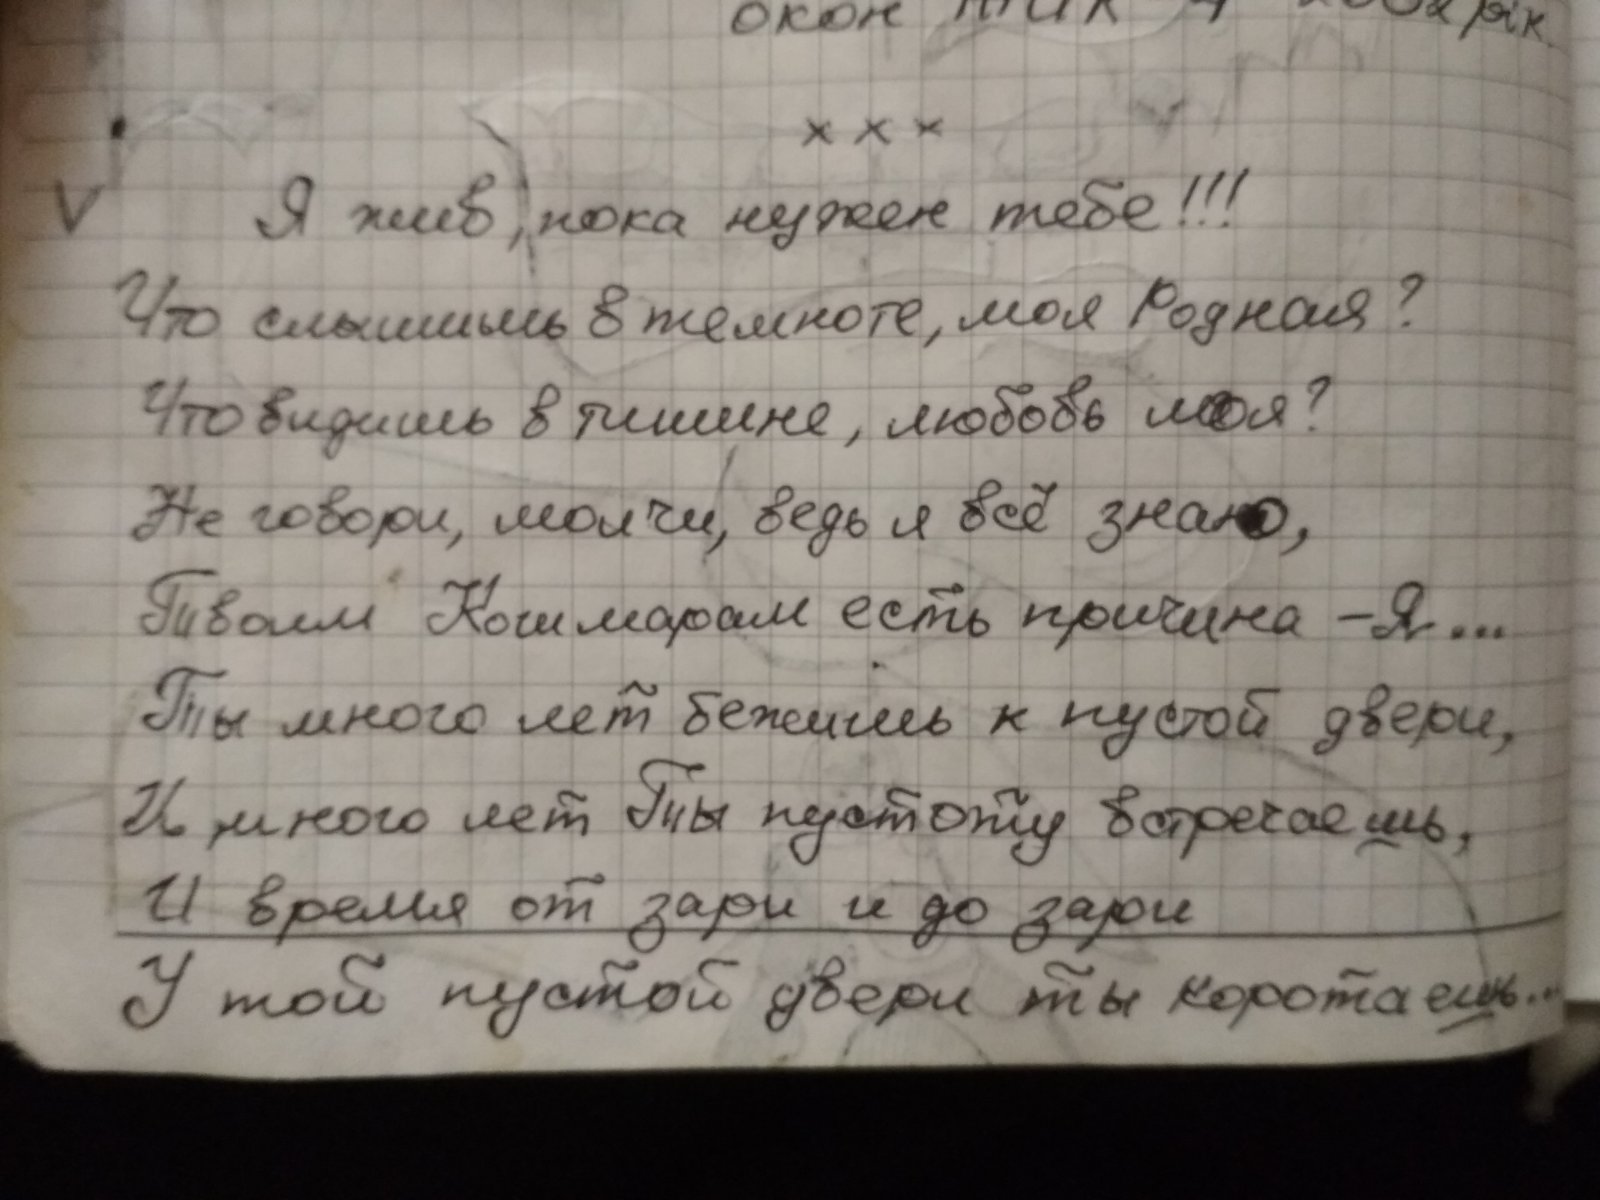 окон
× × ×
V Я жив, пока нужен тебе!!!
Что слышишь в темноте, моя Родная?
Что видишь в тишине, любовь моя?
Не говори, молчи, ведь я всё знаю,
Твоим Кошмарам есть причина – Я...
Ты много лет бежишь к пустой двери,
И много лет Ты пустоту встречаешь,
И время от зари и до зари
У той пустой двери ты коротаешь...